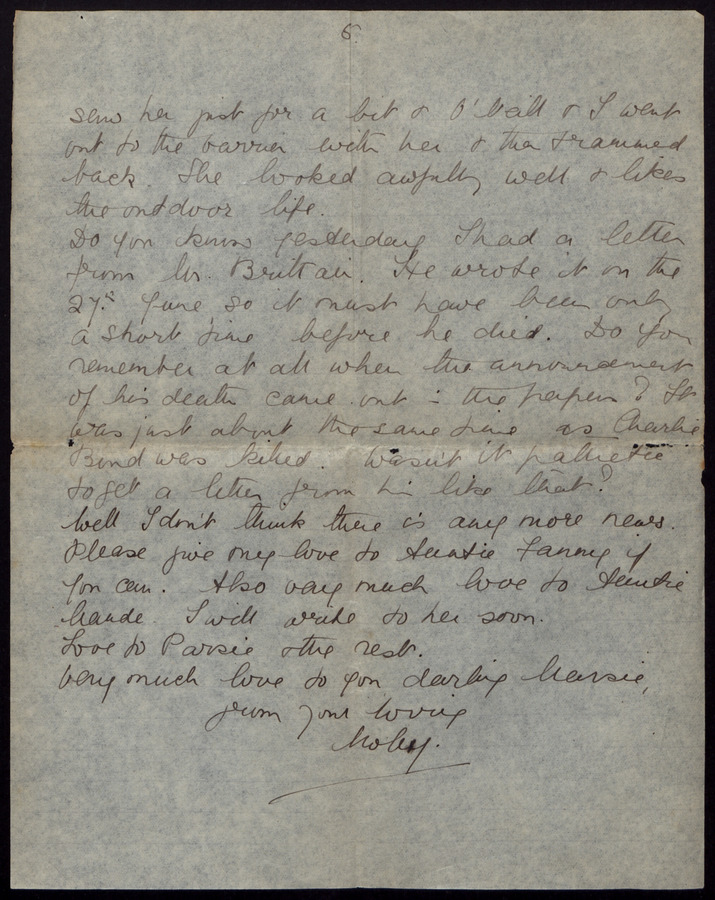 6.
saw her just for a bit & O'Neill & I went
out to the barrier with her & then trammed
back. She looked awfully well & likes
the outdoor life.
Do you know yesterday I had a letter
from Mr. Brittain. He wrote it on the
27th June so it must have been only
a short time before he died. Do you
remember at all when the announcement
of his death came out in the papers? It
was just about the same time as Charlie
Bond was killed. Wasn't it pathetic
to get a letter from him like that?
Well I don't think there is any more news.
Please give my love to Auntie Fanny if
you can. Also very much love to Auntie
Maude. I will write to her soon.
Love to Parsie & the rest.
Very much love to you darling Marsie,
from your loving